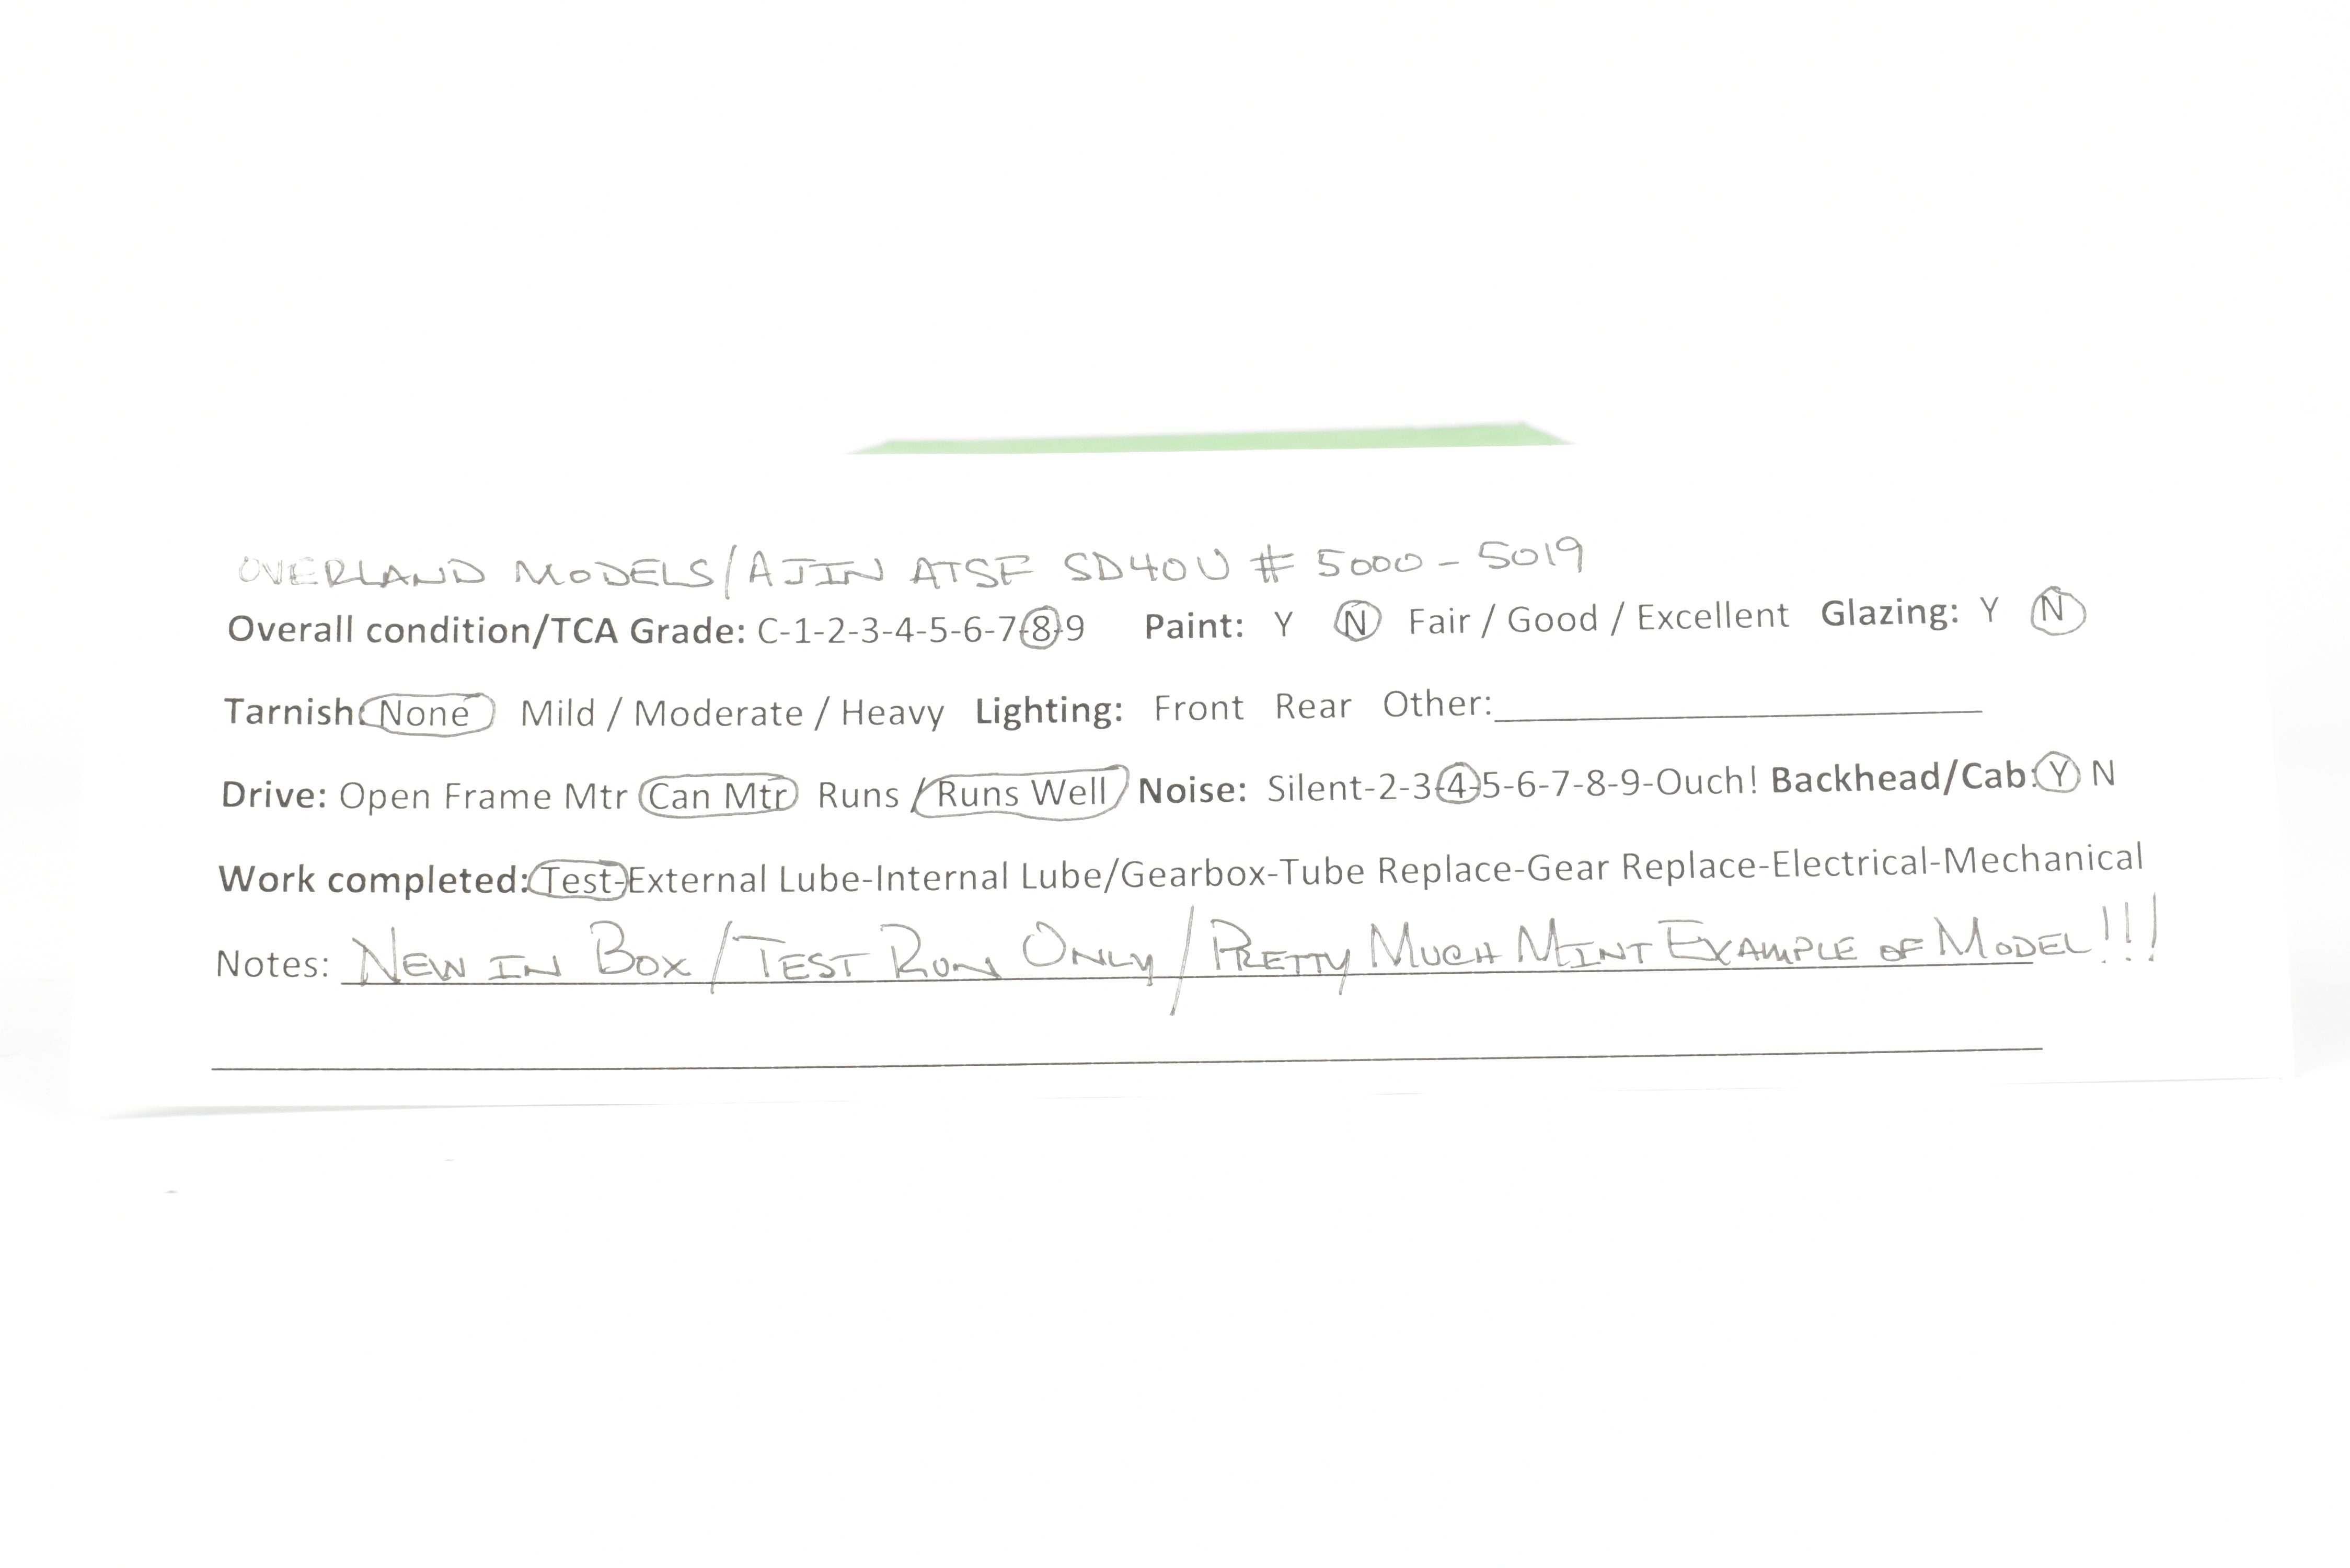 OVERLAND MODELS/AJIN ATSF SD40U # 5000-5019
Overall condition/TCA Grade: C-1-2-3-4-5-6-7-8-9 Paint: Y N Fair / Good / Excellent Glazing: Y N
Tarnish: None Mild / Moderate / Heavy Lighting: Front Rear Other:
Drive: Open Frame Mtr Can Mtr Runs / Runs Well Noise: Silent-2-3-4-5-6-7-8-9-Ouch! Backhead/Cab: Y N
Work completed: Test-External Lube-Internal Lube/Gearbox-Tube Replace-Gear Replace-Electrical-Mechanical
Notes: NEW IN BOX/TEST RUN ONLY/PRETTY MUCH MINT EXAMPLE OF MODEL!!!